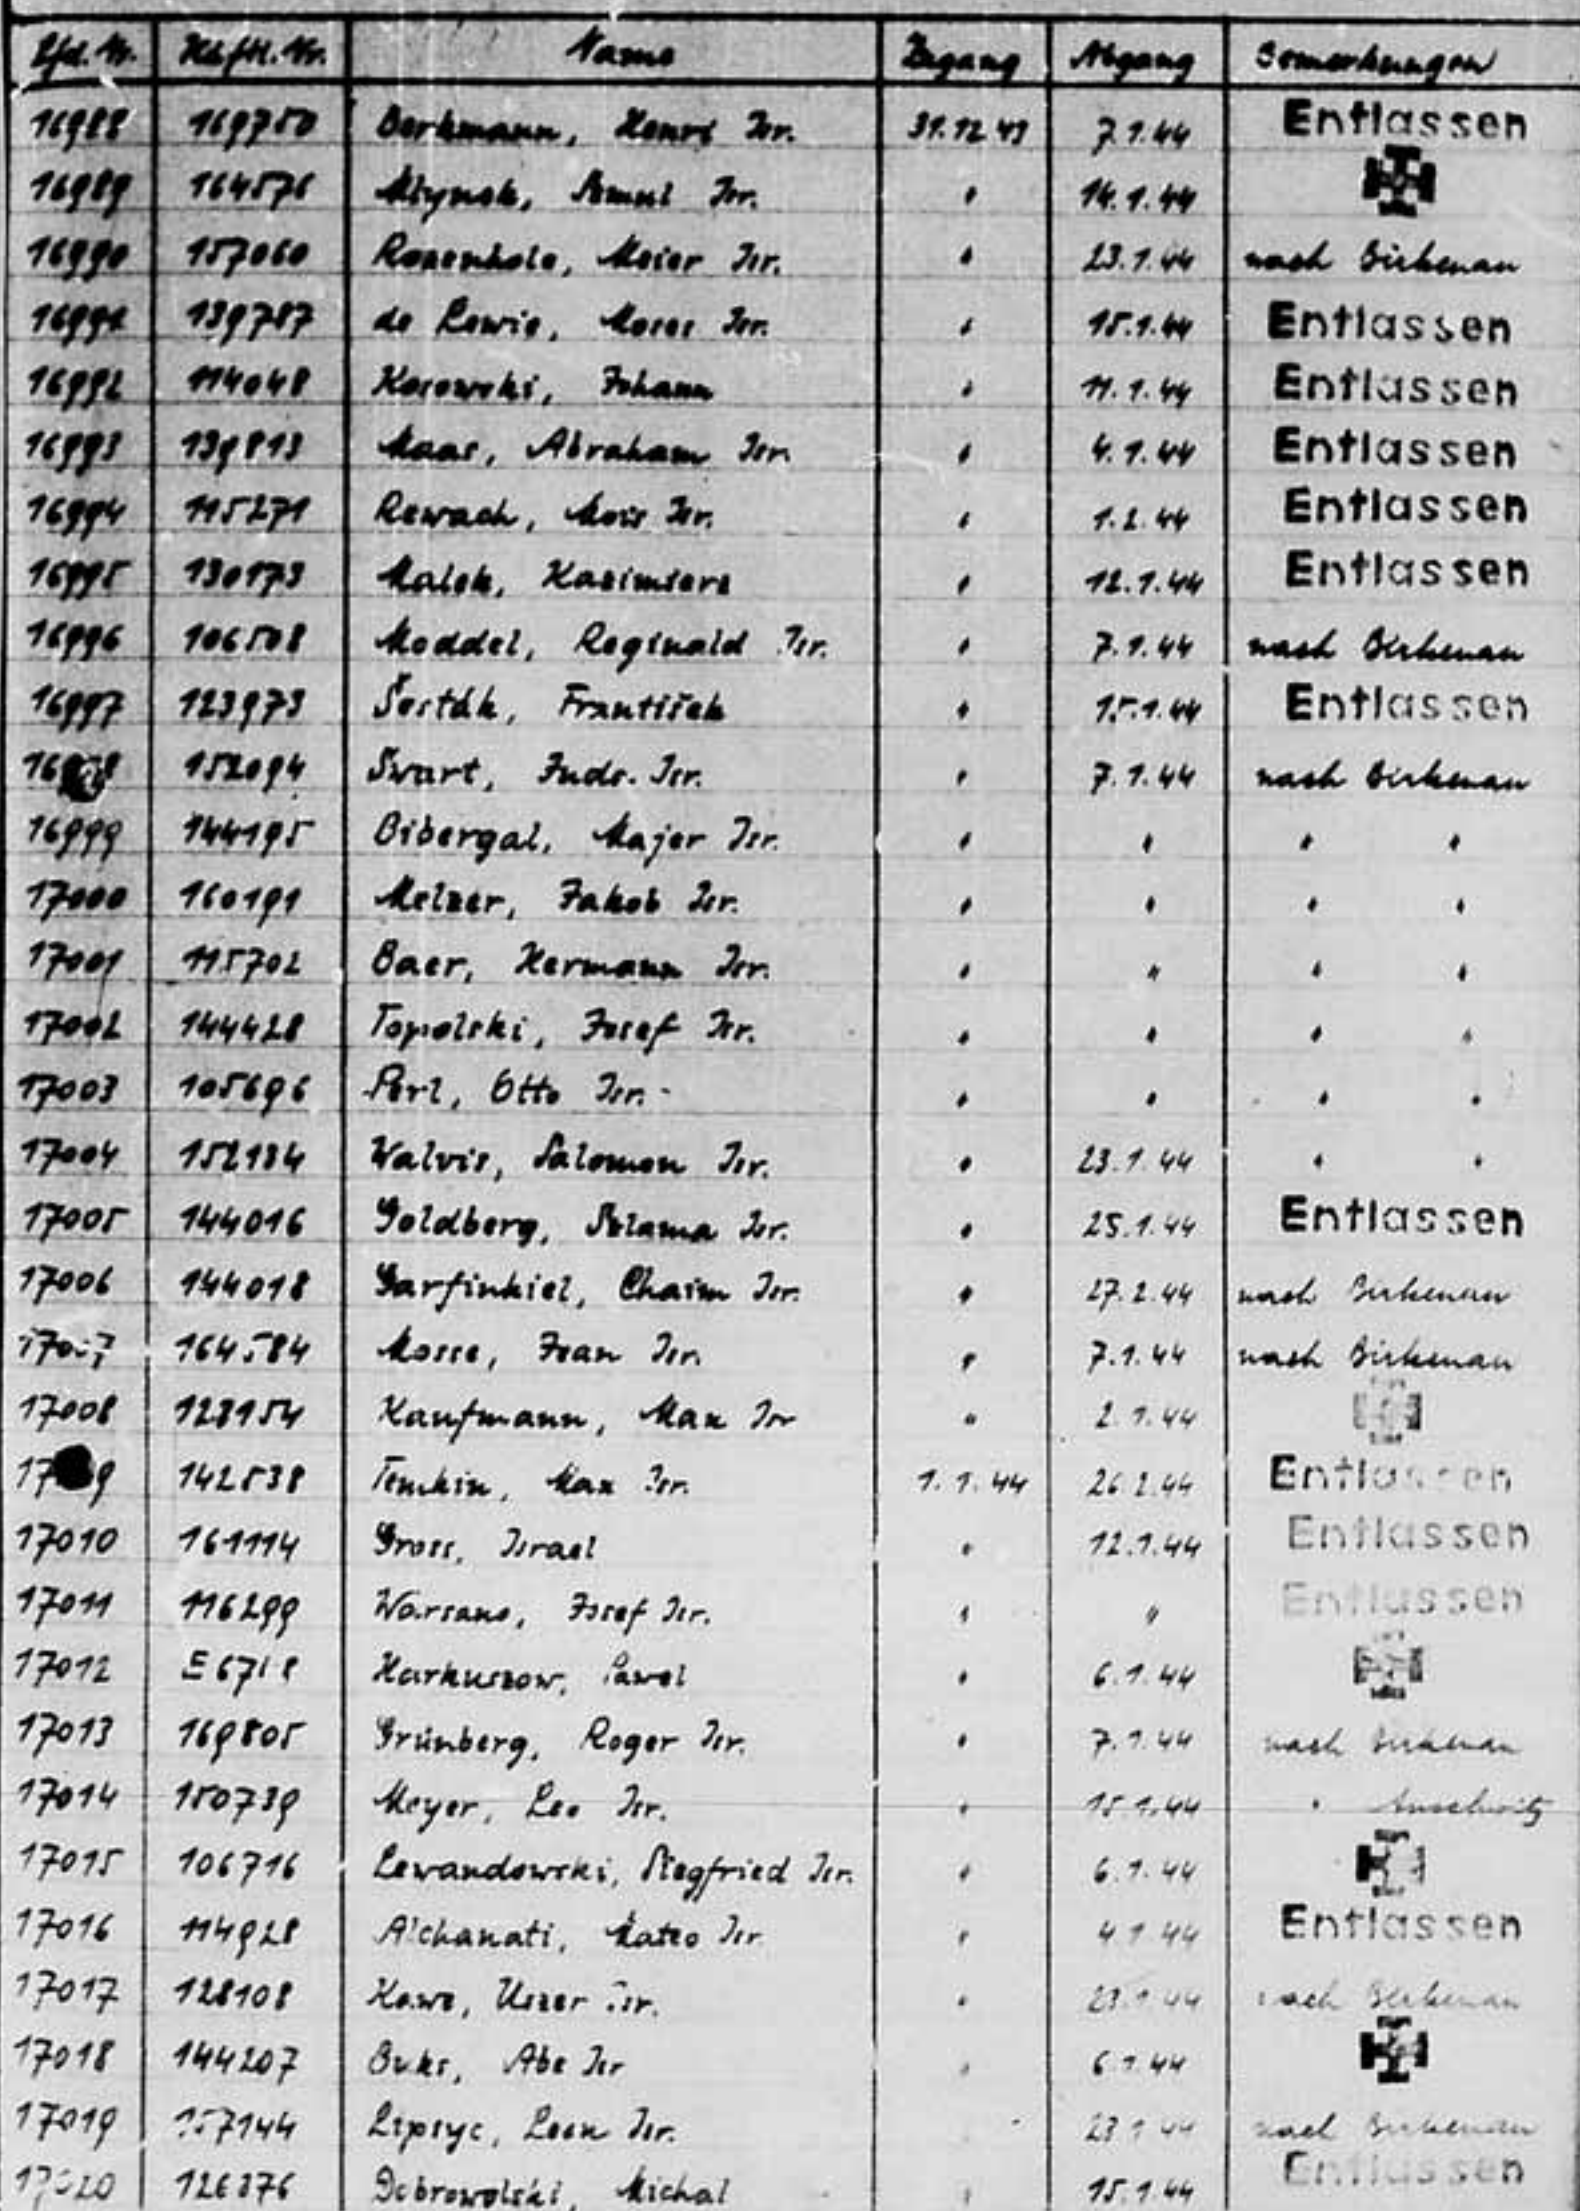 Lfd. Nr. Häftl. Nr. Name Zugang Abgang Bemerkungen
16988 169750 Berkmann, Henri Isr. 31.12.43 7.1.44 Entlassen
16989 164576 Młynek, Szmul Isr. " 14.1.44
16990 157060 Rozenholc, Meier Isr. " 23.1.44 nach Birkenau
16991 139787 de Lewie, Moses Isr. " 15.1.44 Entlassen
16992 114048 Kosowski, Johann " 11.1.44 Entlassen
16993 139813 Maas, Abraham Isr. " 4.1.44 Entlassen
16994 115271 Rewach, Mois Isr. " 1.2.44 Entlassen
16995 130173 Malek, Kazimierz " 12.1.44 Entlassen
16996 106508 Moddel, Reginald Isr. " 7.1.44 nach Birkenau
16997 123973 Šesták, František " 15.1.44 Entlassen
152094 Swart, Juda Isr. " 7.1.44 nach Birkenau
16999 144195 Bibergal, Majer Isr. " " " "
17000 160191 Melzer, Jakob Isr. " " " "
17001 115702 Baer, Hermann Isr. " " " "
17002 144428 Topolski, Josef Isr. " " " "
17003 105696 Perl, Otto Isr. " " " "
17004 152134 Walvis, Salomon Isr. " 23.1.44 " "
17005 144016 Goldberg, Szlama Isr. " 25.1.44 Entlassen
17006 144018 Garfinkiel, Chaim Isr. " 27.2.44 nach Birkenau
17007 164584 Mosse, Jean Isr. " 7.1.44 nach Birkenau
17008 128154 Kaufmann, Max Isr " 2.1.44
142538 Temkin, Max Isr. 1.1.44 26.2.44 Entlassen
17010 161114 Gross, Israel " 12.1.44 Entlassen
17011 116299 Warsano, Josef Isr. " " Entlassen
17012 E 6718 Karkuszow, Pawel " 6.1.44
17013 169805 Grünberg, Roger Isr. " 7.1.44 nach Birkenau
17014 150739 Meyer, Leo Isr. " 15.1.44 " Auschwitz
17015 106716 Lewandowski, Siegfried Isr. " 6.1.44
17016 114928 Alchanati, Mateo Isr " 4.1.44 Entlassen
17017 128108 Kawe, Uszer Isr. " 23.1.44 nach Birkenau
17018 144207 Buks, Abe Isr " 6.1.44
17019 157144 Lipsyc, Leon Isr. 23.1.44 nach Birkenau
17020 126376 Dobrowolski, Michal " 15.1.44 Entlassen